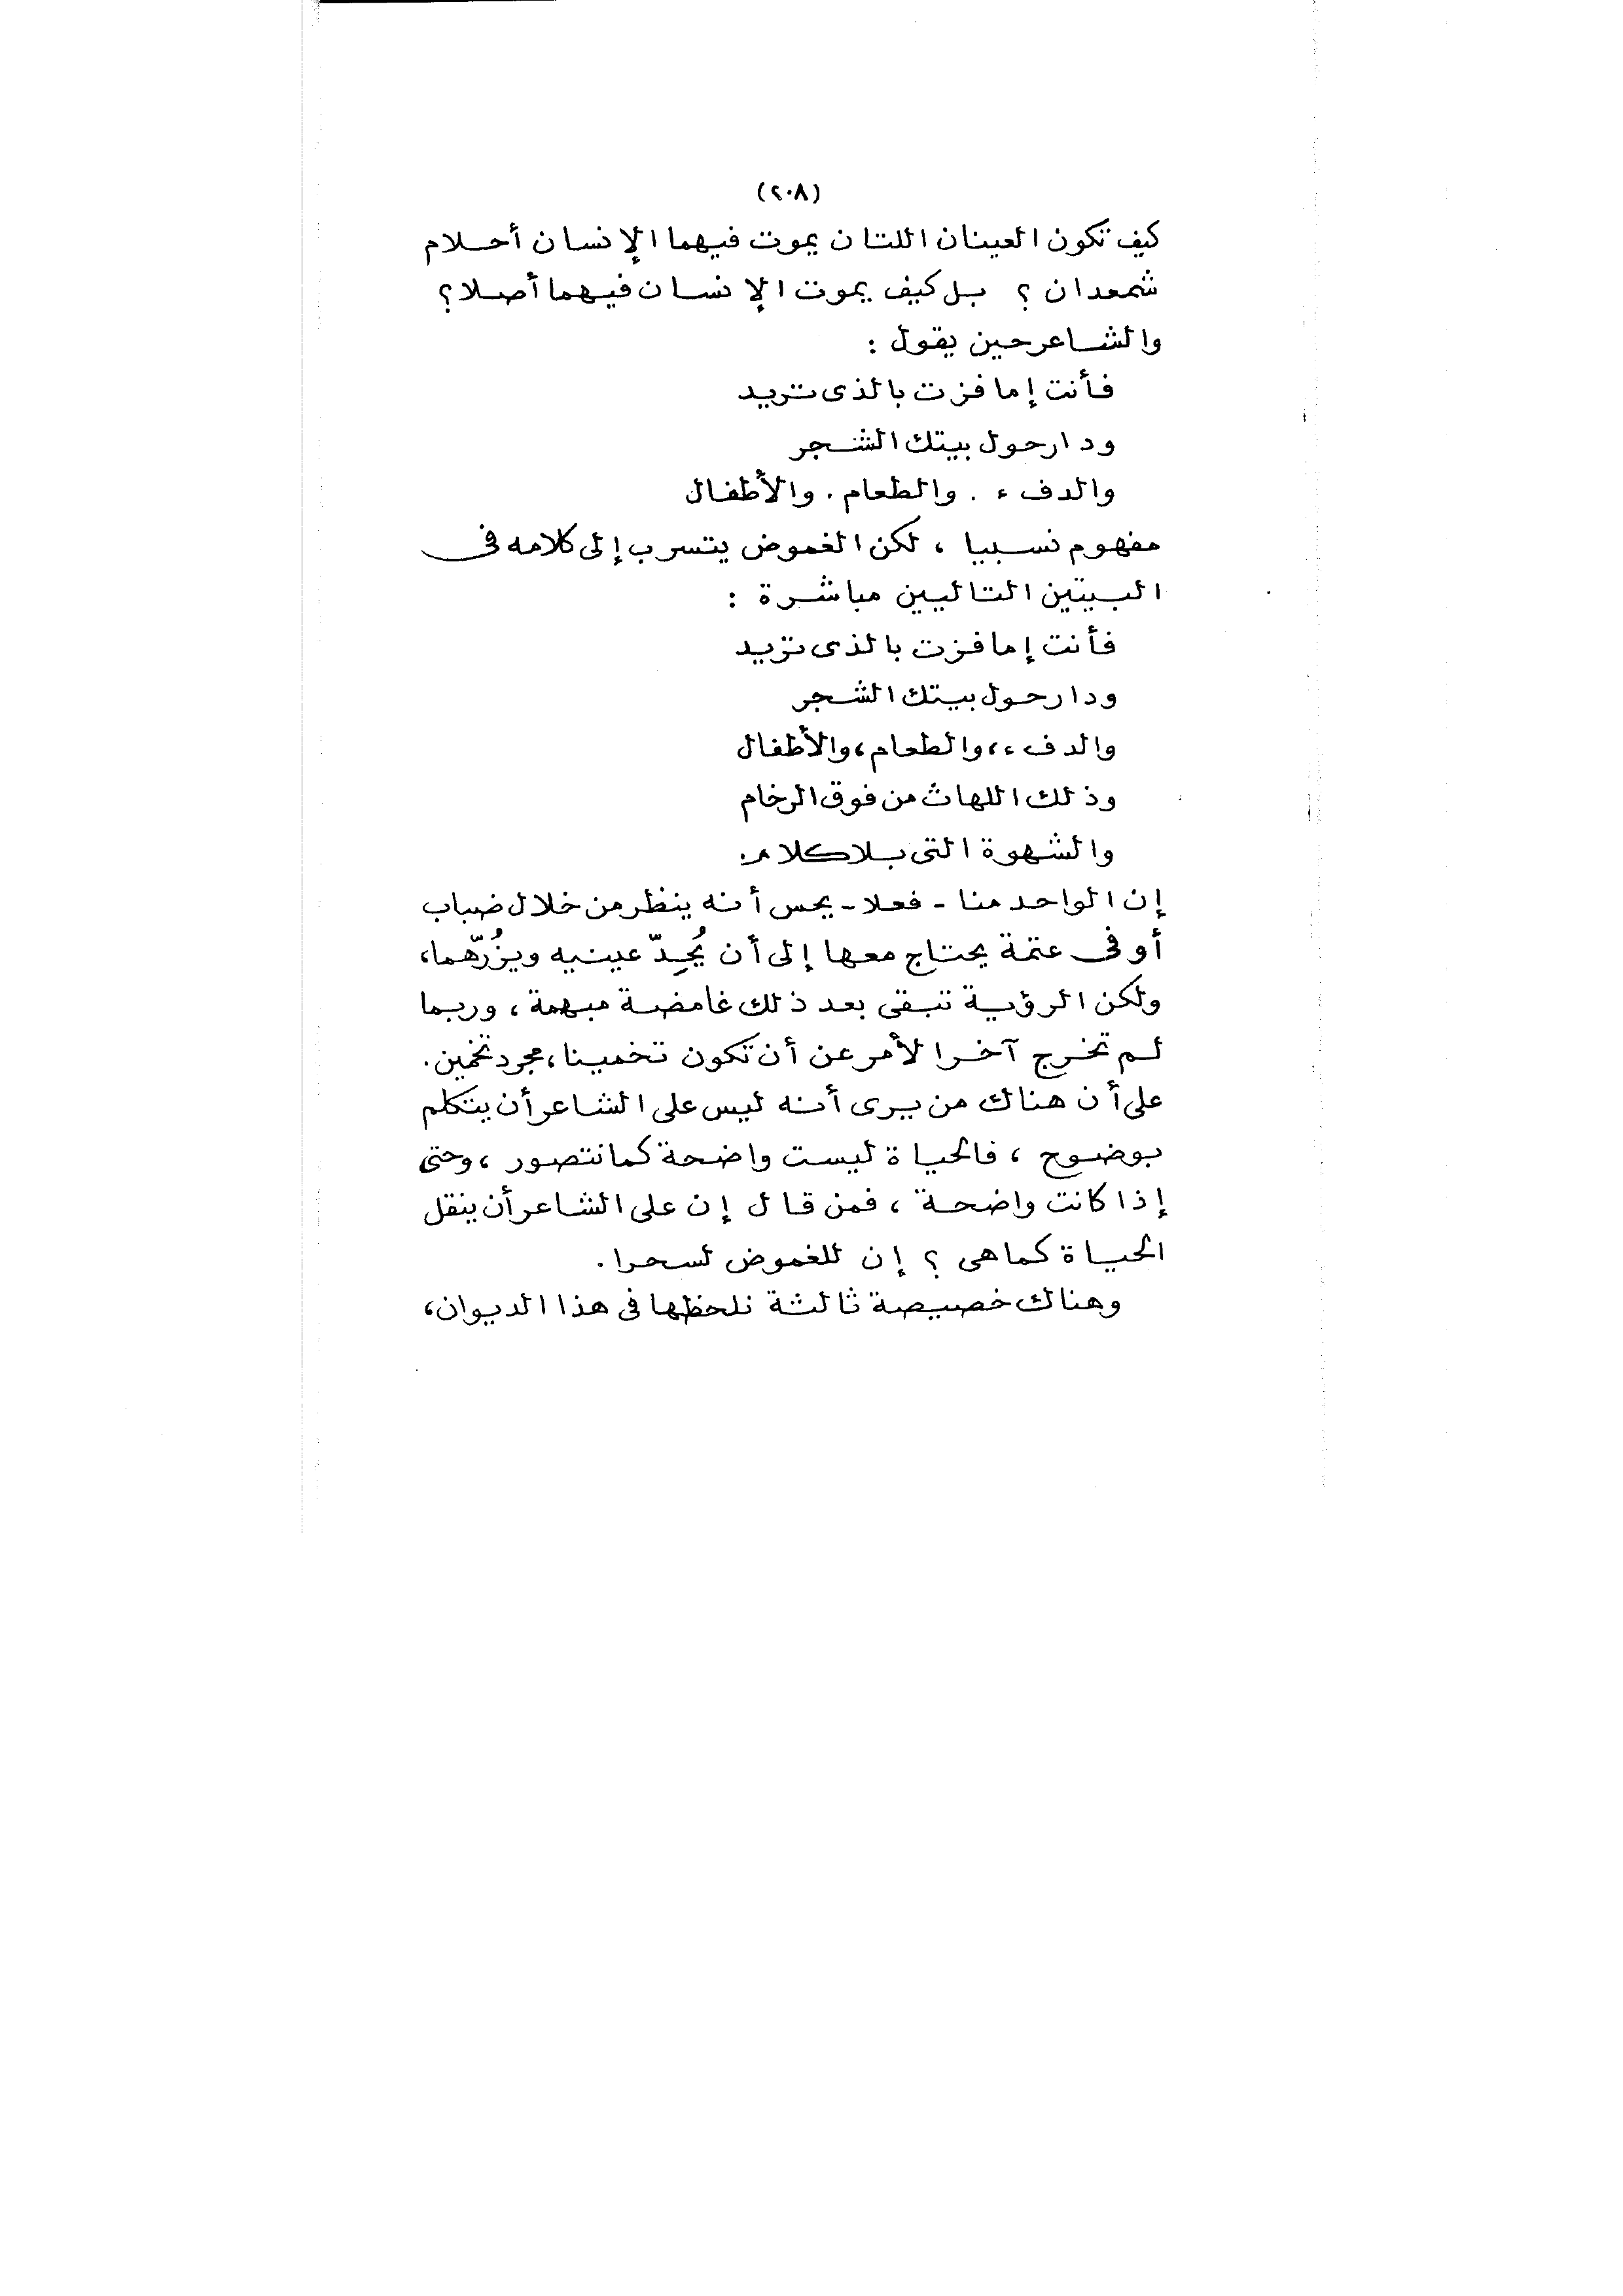 (٢٠٨)
كيف تكون العينان اللتان يموت فيهما الإنسان أحلام
شمعدان ؟ بل كيف يموت الإنسان فيهما أصلا ؟
والشاعر حين يقول :
فأنت إما فزت بالذى تريد
ودار حول بيتك الشجر
والدفء . والطعام . والأطفال
مفهوم نسبيا ، لكن الغموض يتسرب إلى كلامه فى
البيتين التاليين مباشرة :
فأنت إما فزت بالذى تريد
ودار حول بيتك الشجر
والدفء ، والطعام ، والأطفال
وذلك اللهاث من فوق الرخام
والشهوة التى بلا كلام .
إن الواحد منا - فعلا - يحس أنه ينظر من خلال ضباب
أو فى عتمة يحتاج معها إلى أن يُحِدّ عينيه ويزُرّهما ،
ولكن الرؤية تبقى بعد ذلك غامضة مبهمة ، وربما
لم تخرج آخر الأمر عن أن تكون تخمينا ، مجرد تخمين .
على أن هناك من يرى أنه ليس على الشاعر أن يتكلم
بوضوح ، فالحياة ليست واضحة كما نتصور ، وحتى
إذا كانت واضحة ، فمن قال إن على الشاعر أن ينقل
الحياة كما هى ؟ إن للغموض لسحرا .
وهناك خصيصة ثالثة نلحظها فى هذا الديوان ،